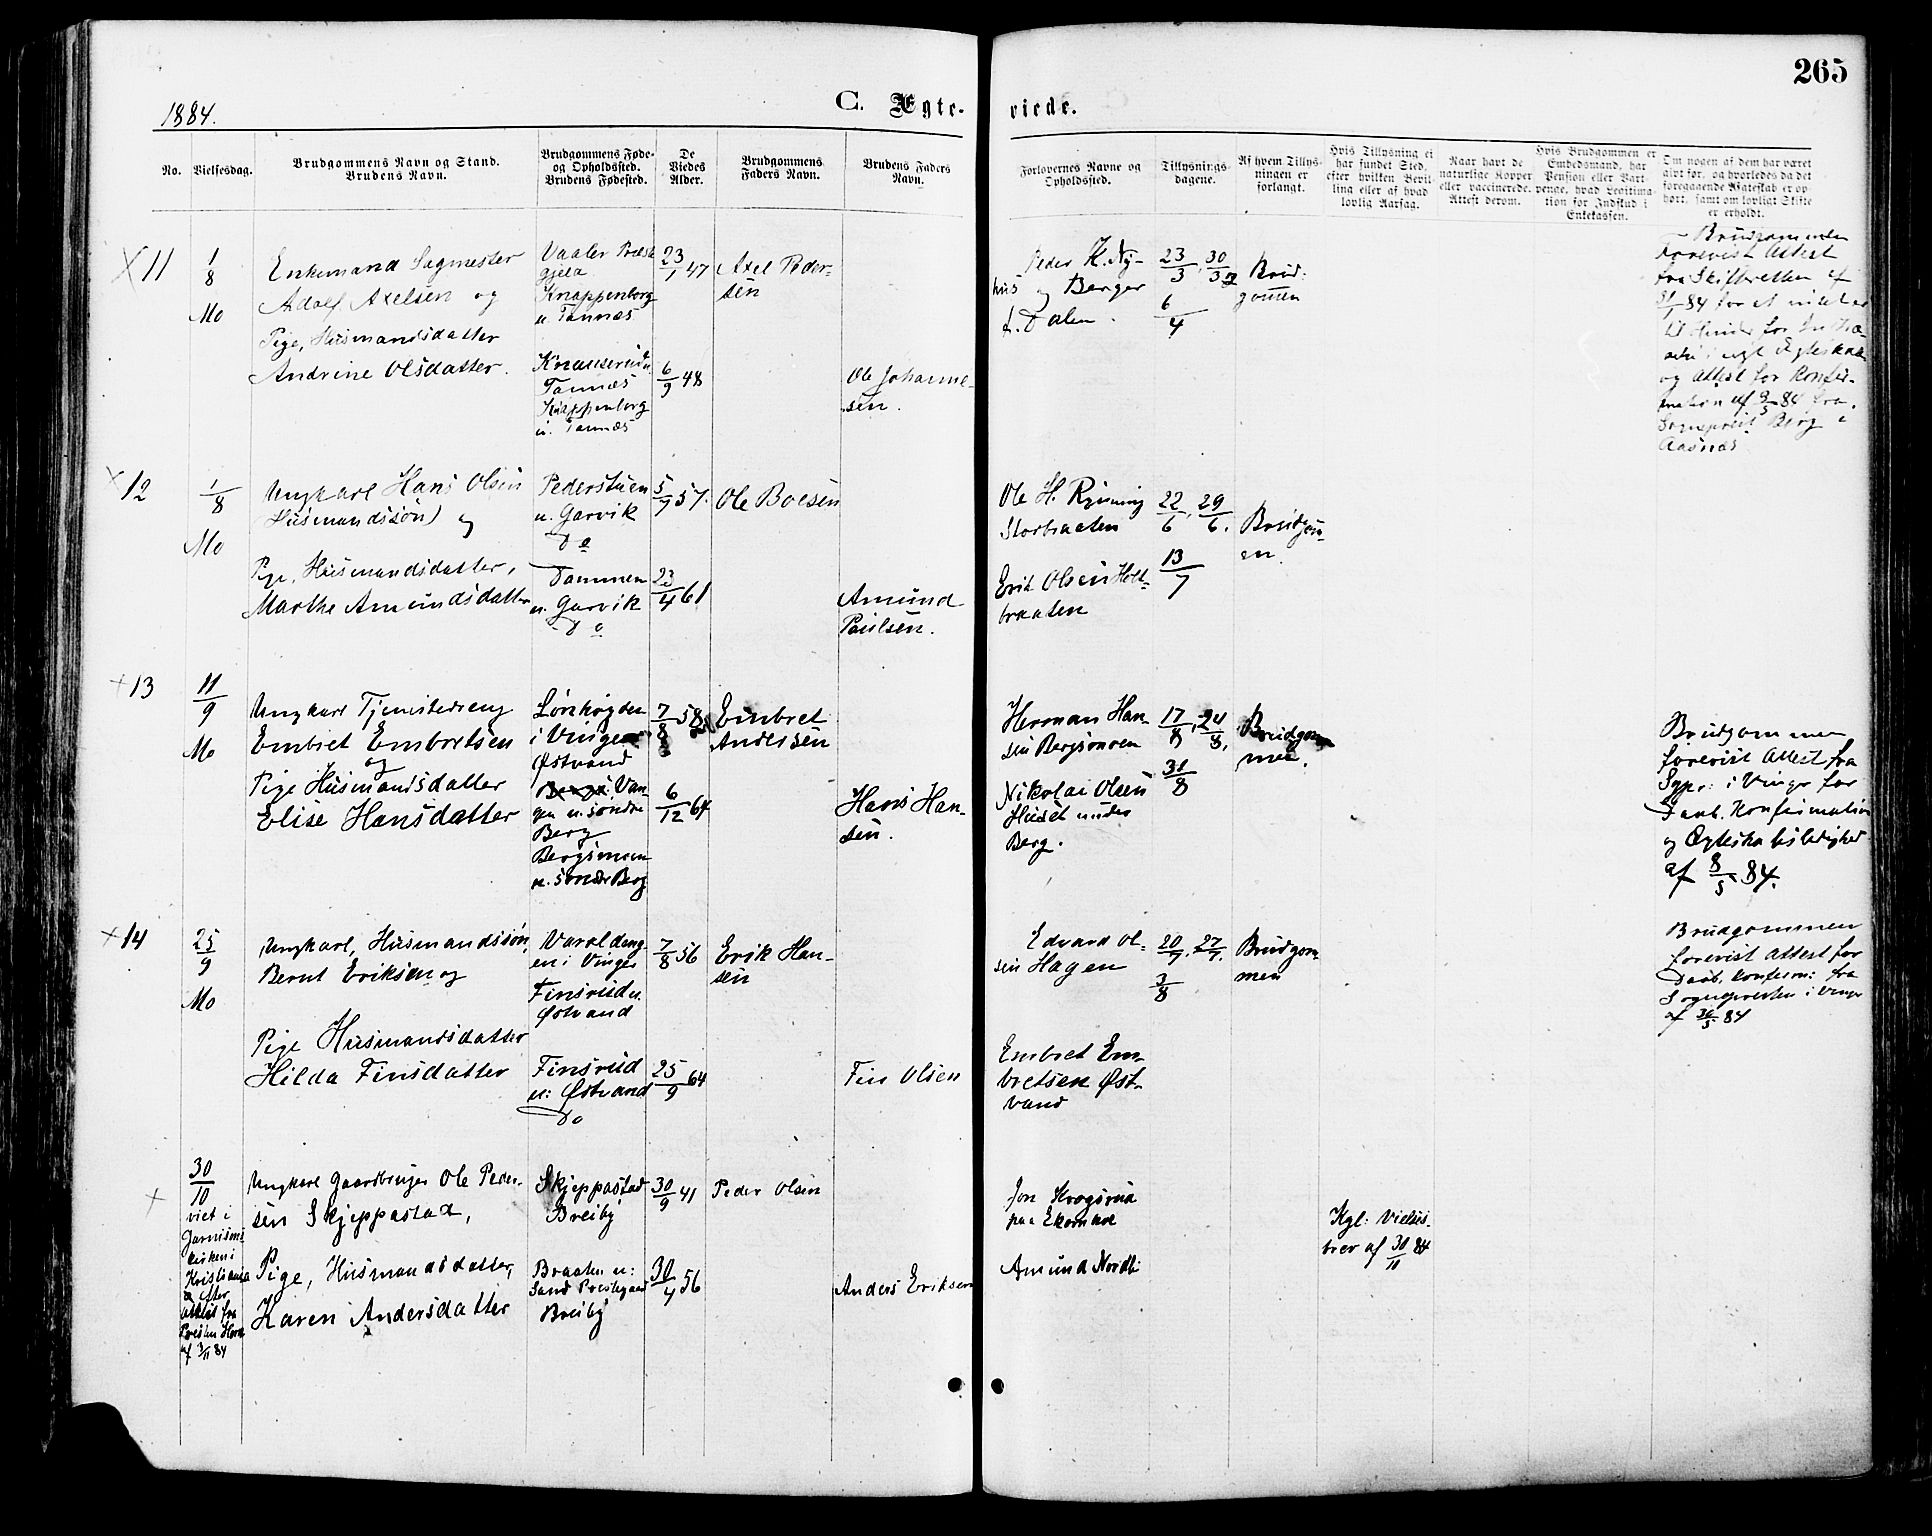 265
1884.
C. Ægte-
viede.
No.
Vielsesdag.
Brudgommens Navn og Stand.
Brudens Navn.
Brudgommens Føde-
og Opholdssted.
Brudens Fødested.
De
Viedes
Alder.
Brudgommens
Faders Navn.
Brudens Faders
Navn.
Forlovernes Navne og
Opholdssted.
Tillysnings-
dagene.
Af hvem Tillys-
ningen er
forlangt.
Hvis Tillysning ei
har fundet Sted,
efter hvilken Bevil-
ling eller af hvad
lovlig Aarsag.
Naar havt de
naturlige Kopper
eller vaccinerede.
Attest derom.
Hvis Brudgommen er
Embedsmand, har
Pension eller Vart-
penge, hvad Legitima-
tion for Indskud i
Enkekassen.
Om nogen af dem har været
gift før, og hvorledes da det
foregaaende Ægteskab er op-
hørt, samt om lovligt Skifte
er erholdt.
X 11
1/8
Mo
Enkemand Sagmester
Adolf Axelsen og
Pige, Husmandsdatter
Andrine Olsdatter.
Vaaler Præste
gjeld
Knappenborg
u. Tannæs
Tannæs
Knappenborg
u. Tannæs
23/1 47
6/9 48
Axel Peder-
sen
Ole Johanne-
sen.
Peder K. Ny-
hus og Berger
Dalen.
23/3, 30/3
6/4
Brud-
gomen
Brudgommen
Forevist Attest
fra Skifteretten af
84 for at intet er
til Hinder for
og Attest for Konfir-
mation af 84 fra
Sogneprest Berg i
Aasnæs
X 12
1/8
Mo
Ungkarl Hans Olsen
(Husmandssøn) og
Pige, Husmandsdatter,
Marthe Amundsdatter
Pederstuen
u. Garvik
Do
Dammen
u. Garvik
Do
5/7 57.
23/4 61
Ole Boesen
Amund
Paulsen.
Ole H. Rysning
Storbraaten
Erik Olsen Holt-
braaten
22/6, 29/6.
13/7
Brudgom-
en.
+ 13
11/9
Mo
Ungkarl Tjenestedreng
Embret Embretsen
og
Pige Husmandsdatter
Elise Hansdatter
Lønhøgden
i Vinger
Østvand
Van-
gen u. søndre
Berg
Bergsmoen
u. søndre Berg
7/8 58
6/12 64
Embret
Andersen
Hans Han-
sen.
Herman Han-
sen Bergsmoen
Nikolai Olsen
Huset under
Berg.
17/8, 24/8,
31/8
Brudgom-
men.
Brudgommen
forevist Attest fra
Sgpr: i Vinger for
Daab, Konfirmation
og Ægteskabsledighed
af 8/5 84.
+ 14
25/9
Mo
Ungkarl, Husmandssøn,
Bernt Eriksen og
Pige Husmandsdatter
Hilda Finsdatter
Varaldeng-
en i Vinger
Finsrud u.
Østvand
Finsrud
u: Østvand
Do
7/8 56
25/9 64
Erik Han-
sen
Fin Olsen
Edvard Ol-
sen Hagen
Embret Em-
bretsen Øst-
vand
20/7. 27/7.
3/8
Brudgom-
men
Brudgommen
forevist Attest for
Daab, Konfirm: fra
Sognepresten i Vinger
af 30/5 84
+
30/10
viet i
Garnisons
kirken i
Kristiania
efter
Attest fra
Presten Horn
af 3/11 84
Ungkarl Gaardbruger Ole Peder-
sen Skjeppastad,
Pige, Husmandsdatter,
Karen Andersdatter
Skjeppastad
Breiby
Braaten u:
Sand Prestegaard
Breiby
30/9 41
30/4 56
Peder Olsen
Anders Eriksen
Jon Krogsrud
paa Ekornhol
Amund Nordli
Kgl: Vielses-
brev af 30/11 84